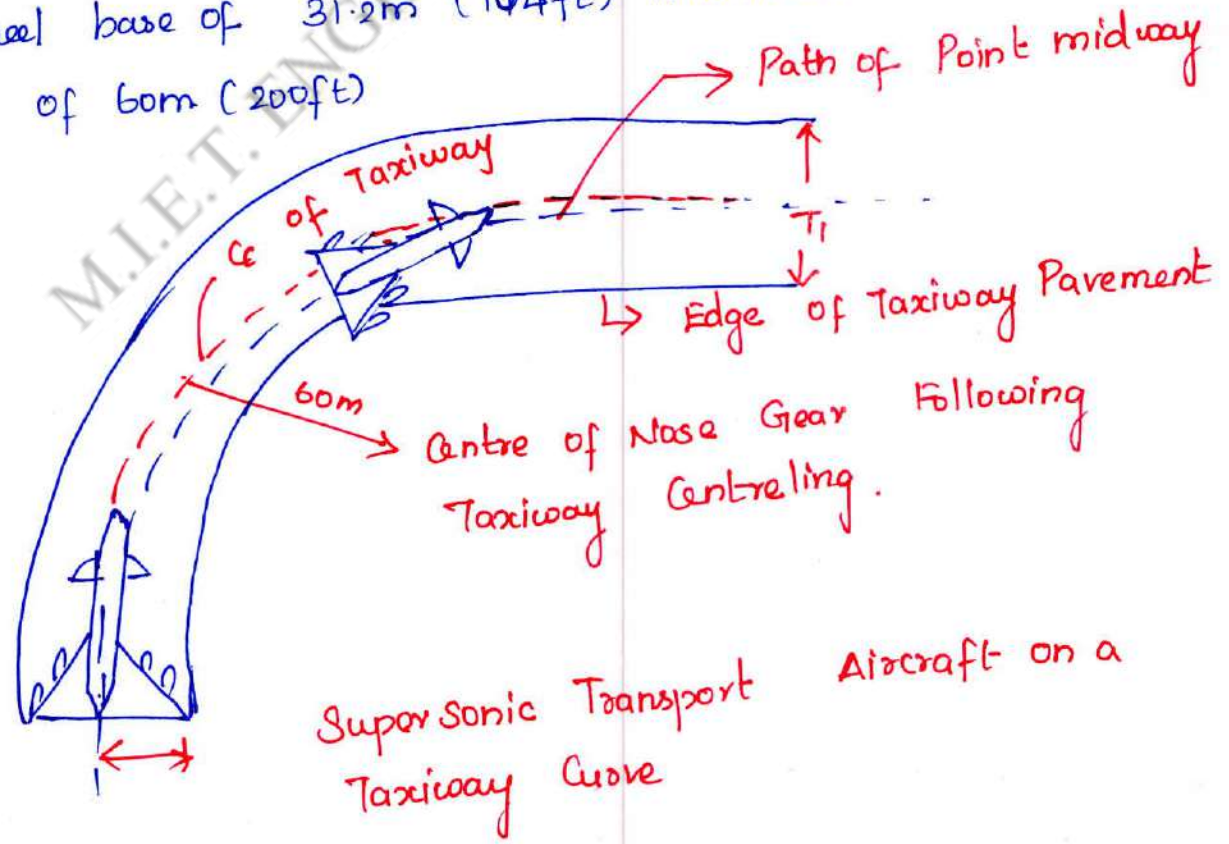 eel base of 31.2m (104ft)
of 60m (200ft)
M.I.E.T. ENG
Path of Point midway
C of Taxiway
T1
Edge of Taxiway Pavement
60m
Centre of Nose Gear Following
Taxiway Centreling.
Supersonic Transport Aircraft on a
Taxiway Curve